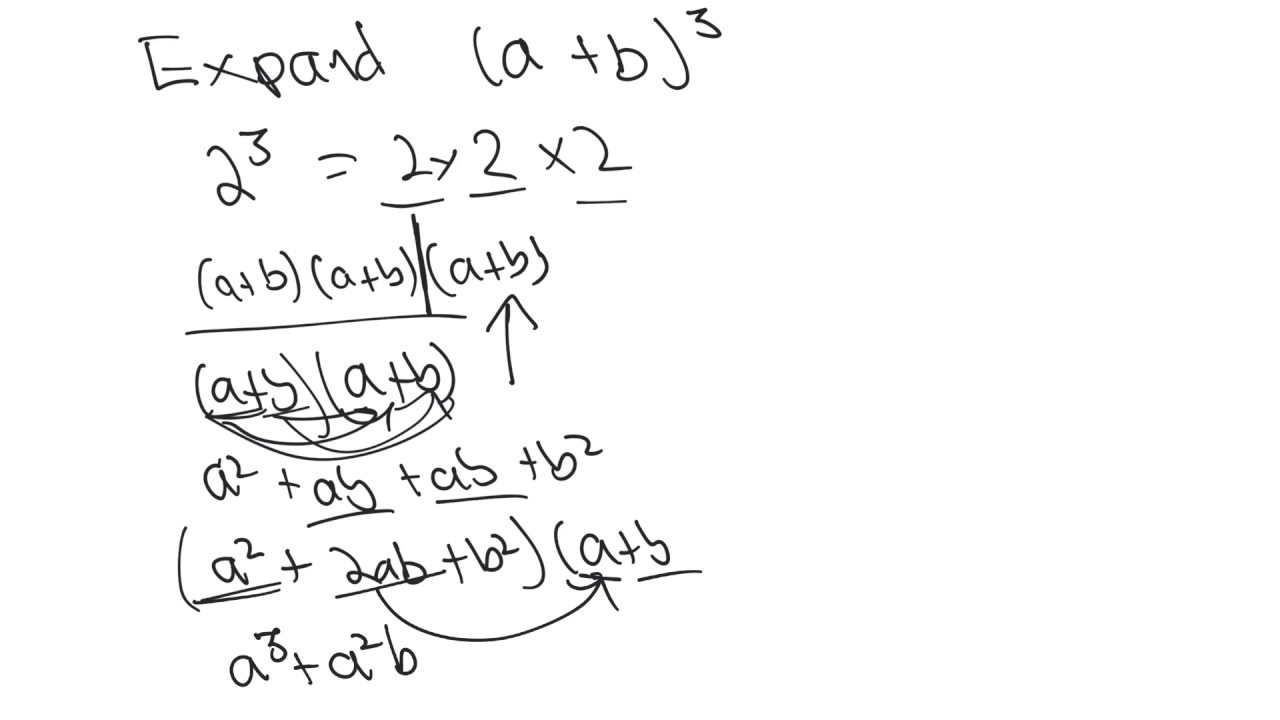 Expand (a + b)³
2³ = 2 × 2 × 2
(a+b)(a+b)(a+b)
(a+b)(a+b)
a² + ab + ab + b²
(a² + 2ab + b²)(a+b
a³ + a²b